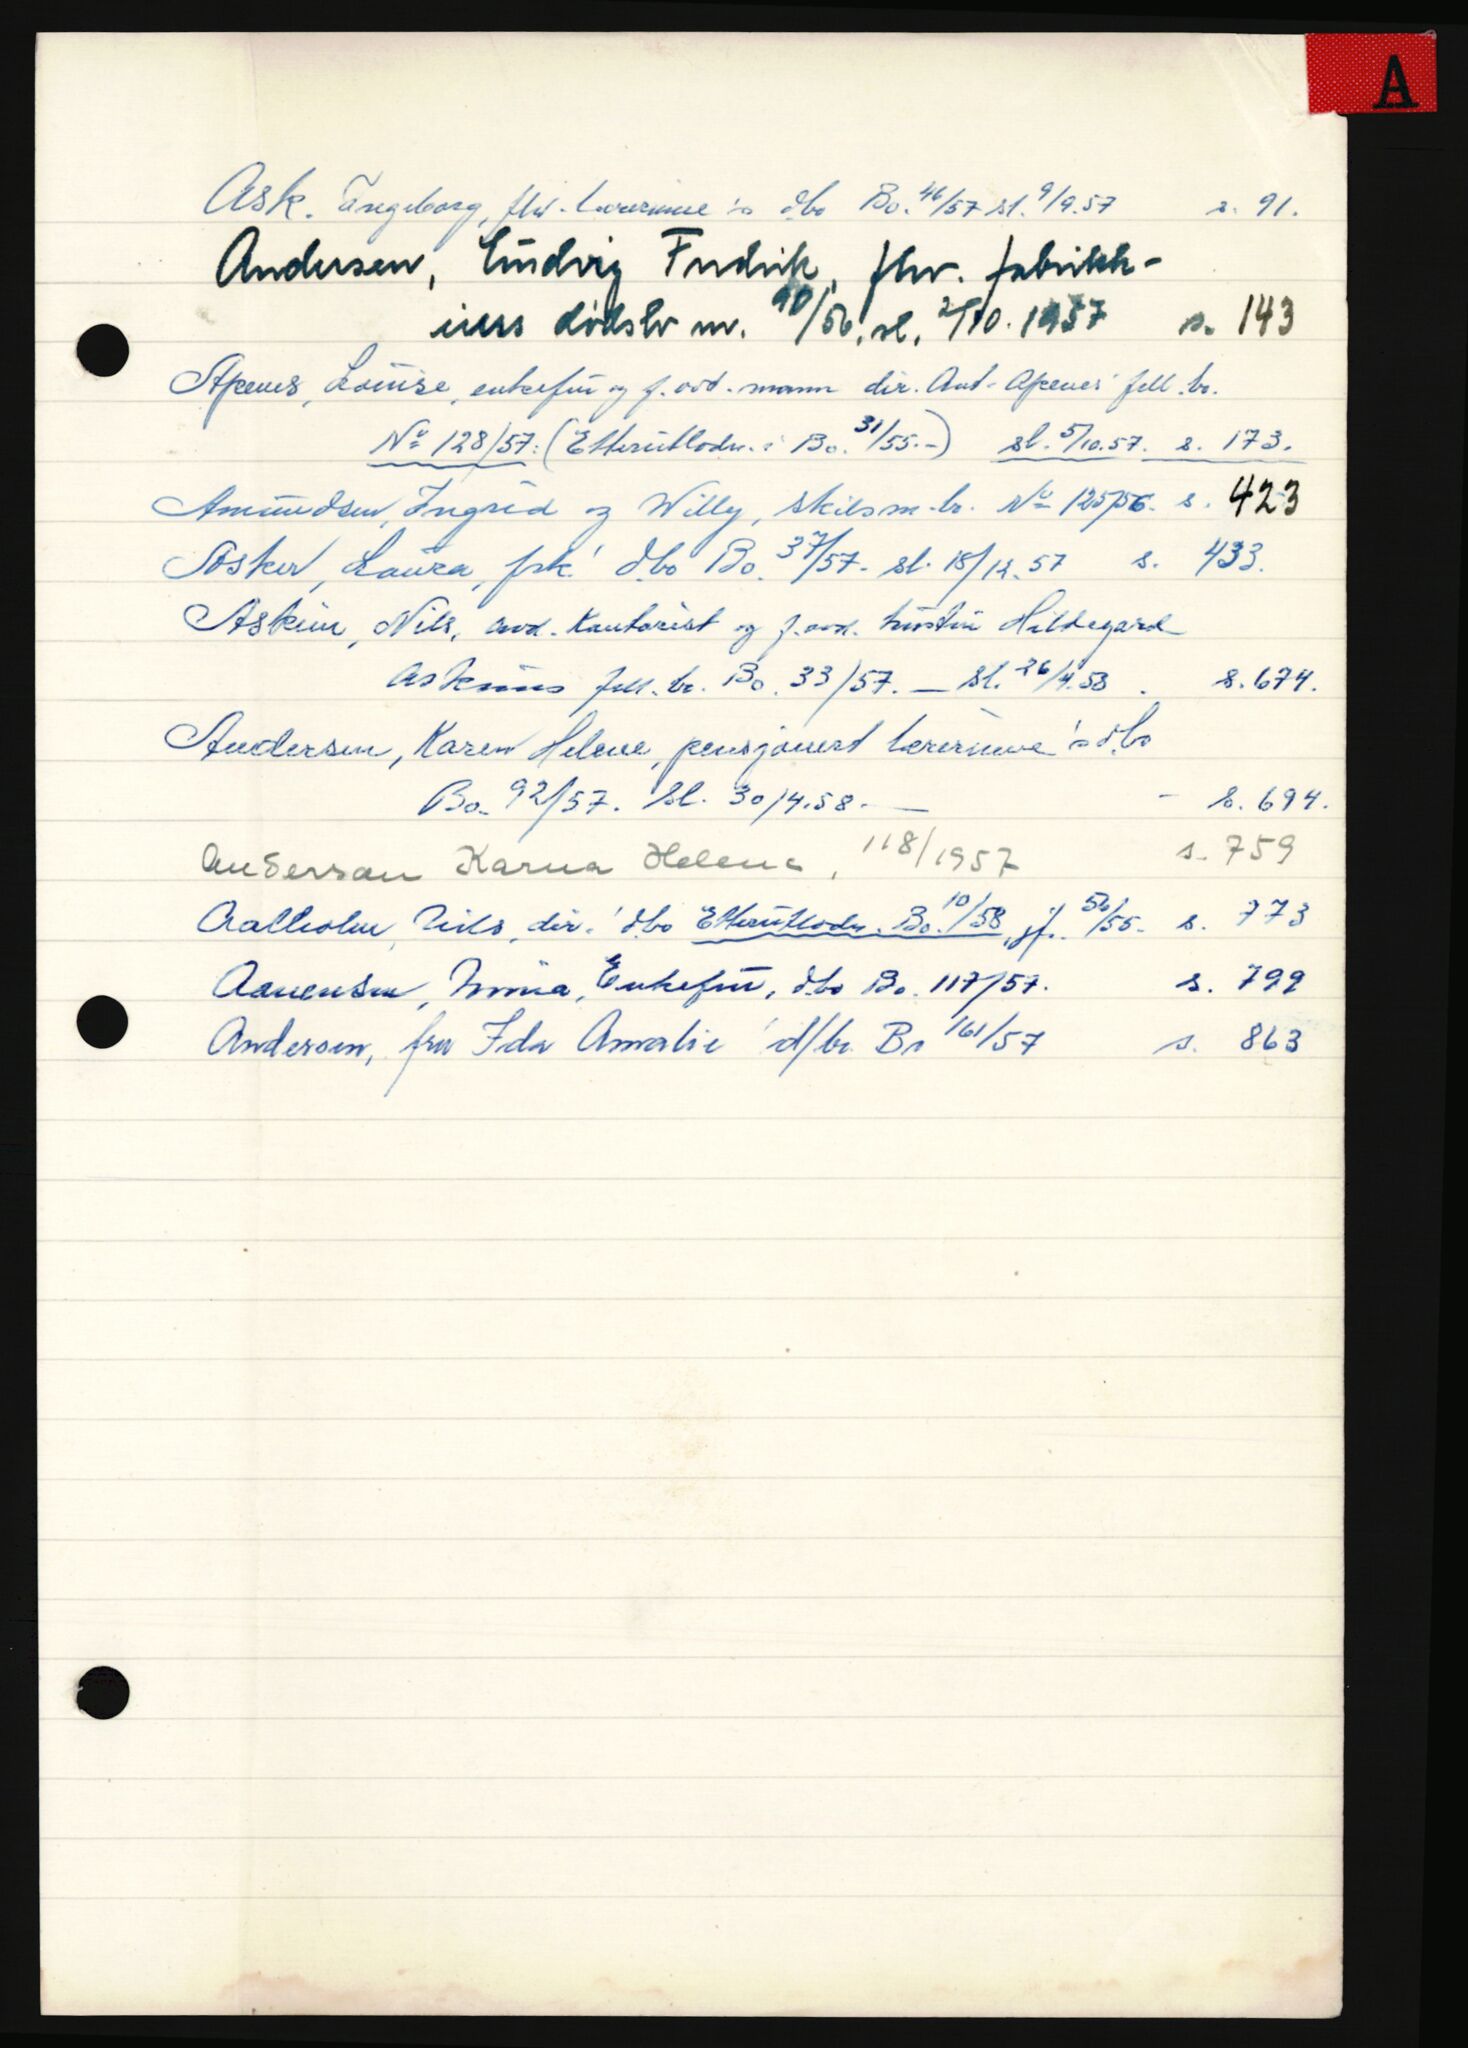 A
Ask. Ingeborg, fhv. lærerinne 's dbo Bo. 46/57 sl. 9/9.57 s. 91.
Andersen, Ludvig Fredrik, fhv. fabrikk-
iers dødsbo nr. 90/56, sl. 2/10. 1957 s. 143
Apenes, Louise, enkefru og f. avd. mann dir. Ant. Apenes' fell. bo.
No 128/57. (Etterutlodn. i Bo. 31/55.-) sl. 5/10.57. s. 173.
Amundsen, Ingrid og Willy, skilsm. bo. No 125/56. s. 423
Asker, Laura, frk.' dbo Bo. 37/57. sl. 18/12.57 s. 433.
Askim, Nils, avd. kontorist og f. avd. hustru Hildegard
Askims fell. bo. Bo. 33/57. — sl. 26/4.58. s. 674.
Andersen, Karen Helene, pensjonert lærerinne 's dbo
Bo. 92/57. sl. 30/4.58. — - s. 694.
Anderson Karna Helene, 118/1957 s. 759
Aalholm, Nils, dir.' dbo Etterutlodn. Bo. 10/58, jf. 56/55. s. 773
Aanensen, Enkefru, dbo Bo. 117/57. s. 799
Andersen, fru Ida Amalie ' d/bo Bo 161/57 s. 863